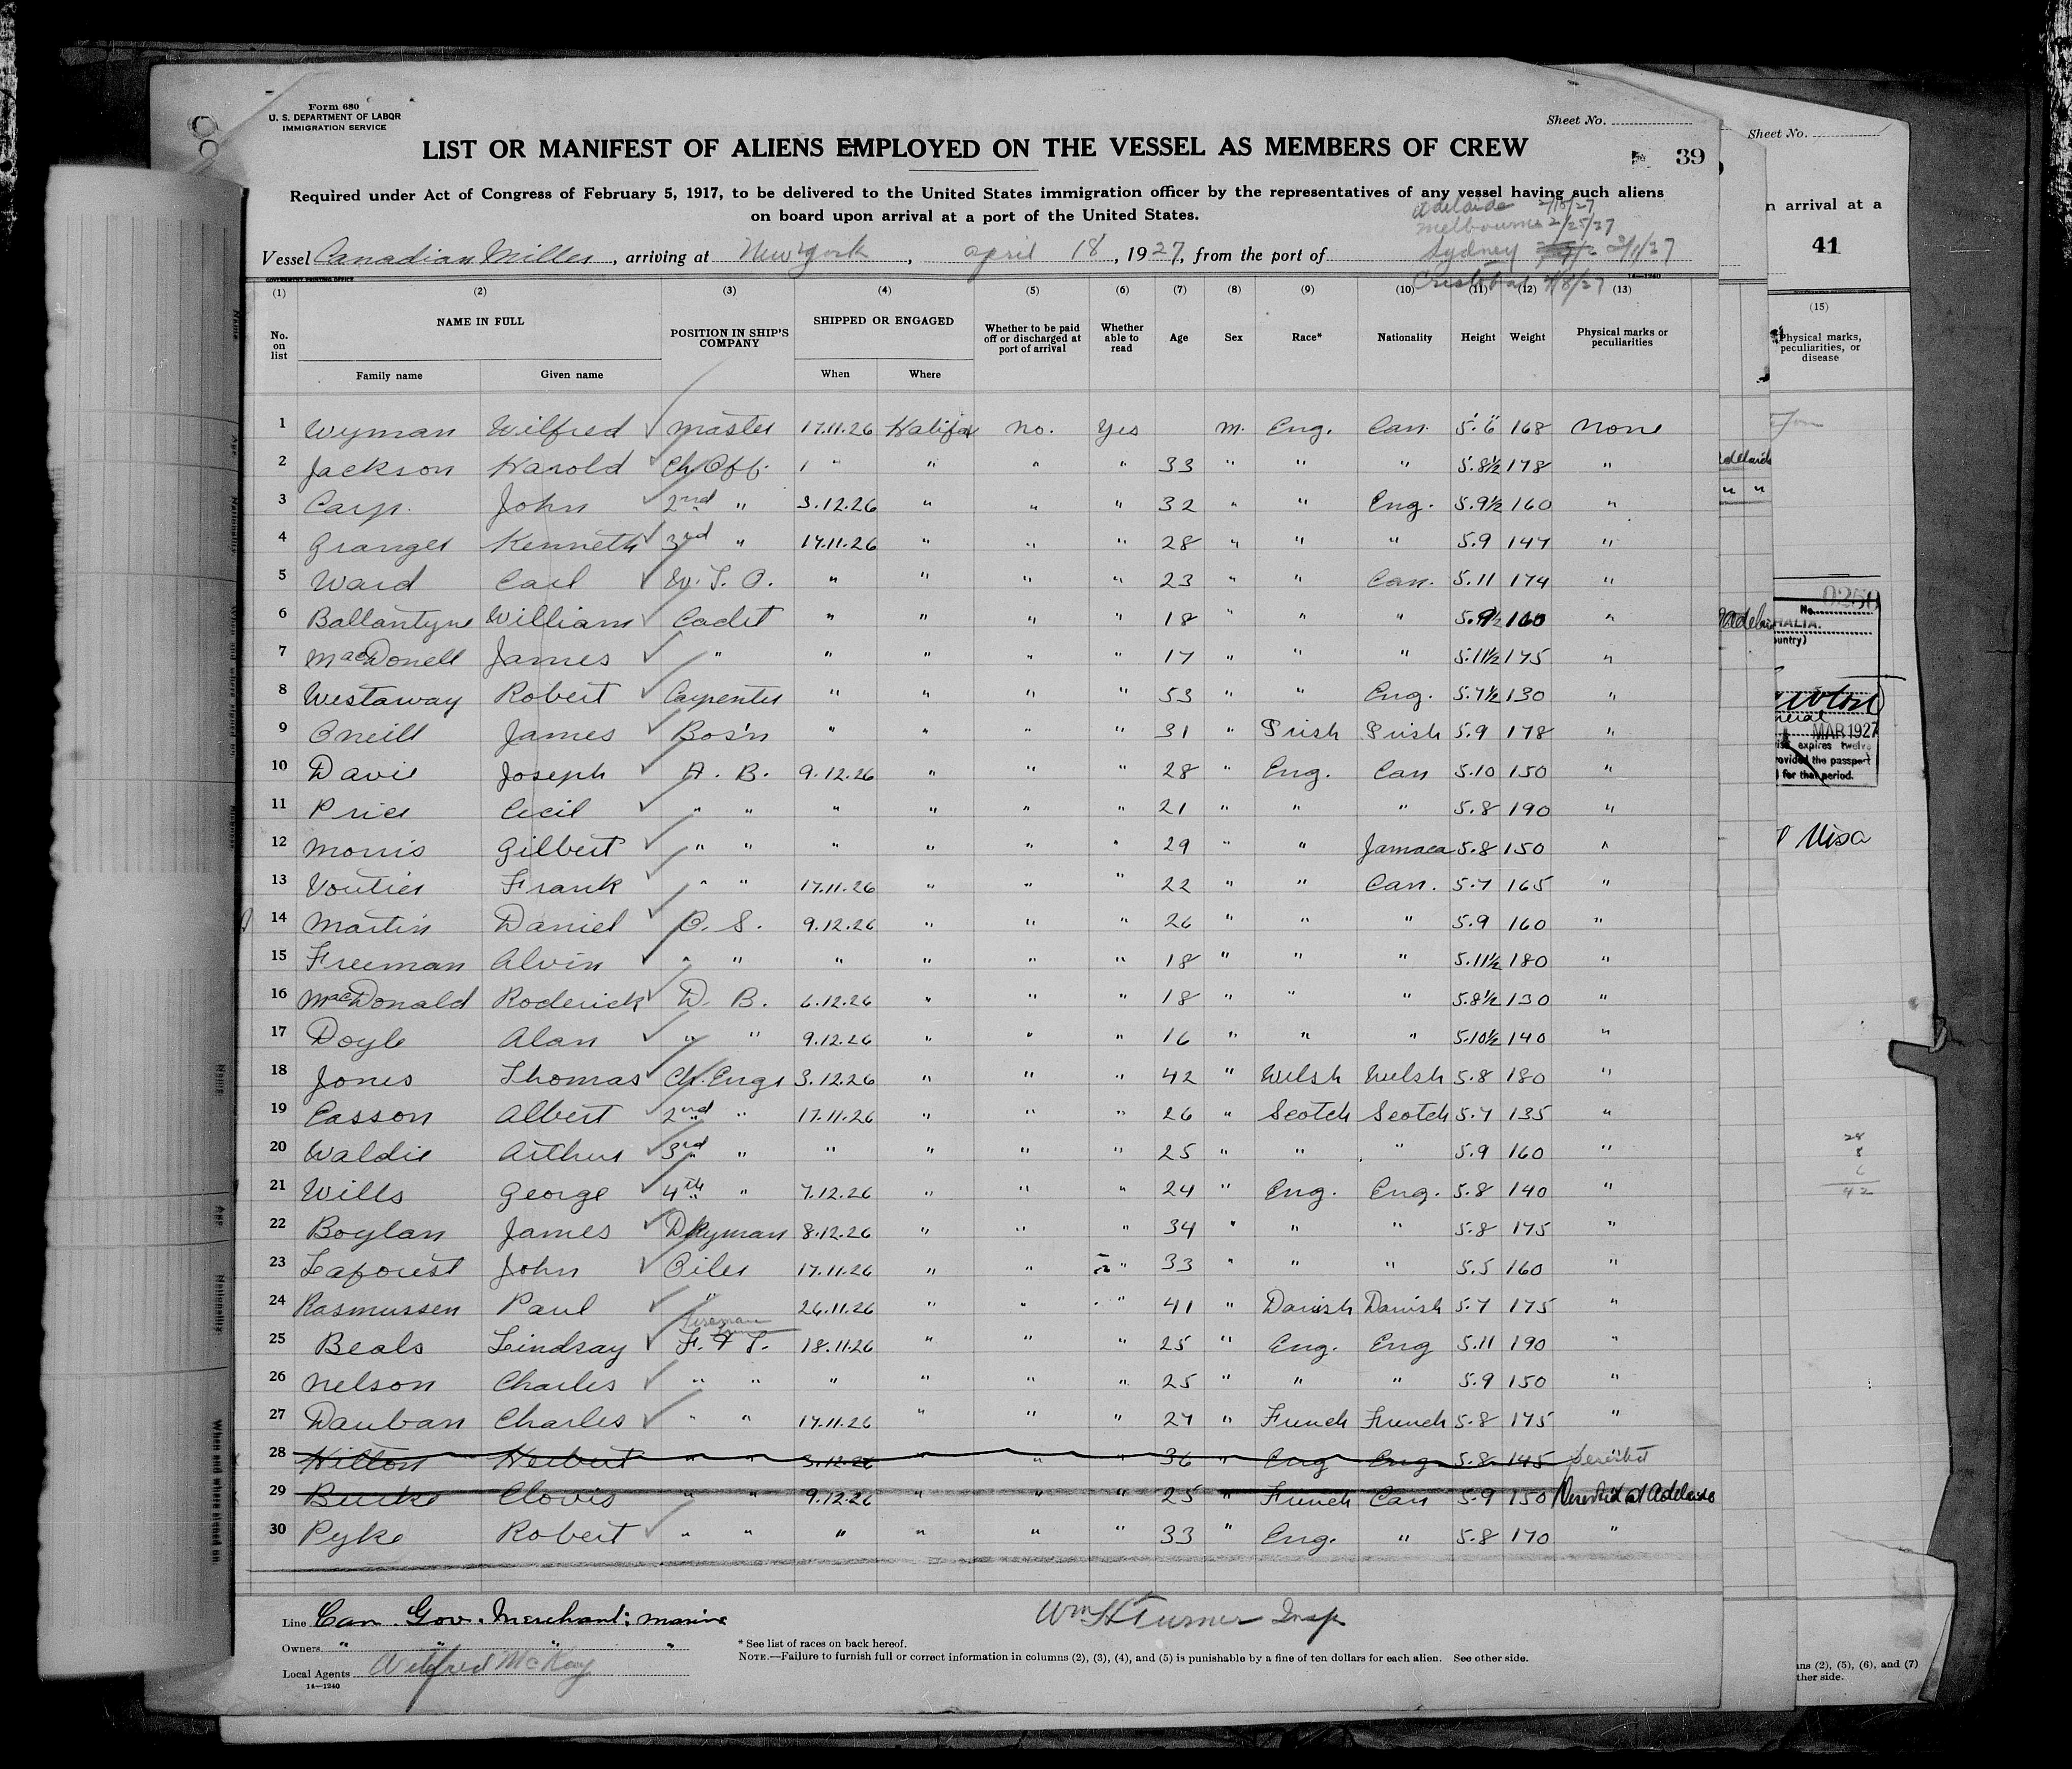 Form 680
U. S. DEPARTMENT OF LABOR
IMMIGRATION SERVICE
Sheet No.
Sheet No.
LIST OR MANIFEST OF ALIENS EMPLOYED ON THE VESSEL AS MEMBERS OF CREW
39
Required under Act of Congress of February 5, 1917, to be delivered to the United States immigration officer by the representatives of any vessel having such aliens
on board upon arrival at a port of the United States.
Adelaide 2/18/27
Melbourne 2/25/27
Vessel Canadian Miller, arriving at New York, April 18, 1927, from the port of Sydney
Cristobal
n arrival at a
41
14—1240
(1) (2) (3) (4) (5) (6) (7) (8) (9) (10) (11) (12) (13)
No. on list NAME IN FULL Family name Given name POSITION IN SHIP'S COMPANY SHIPPED OR ENGAGED When Where Whether to be paid off or discharged at port of arrival Whether able to read Age Sex Race* Nationality Height Weight Physical marks or peculiarities
(15)
Physical marks, peculiarities, or disease
1 Wyman Wilfred Master 17.11.26 Halifax No. Yes M. Eng. Can. 5'.6" 168 None
2 Jackson Harold Ch. Off. " " " " 33 " " " 5.8½ 178 "
3 Carp. John 2nd " 3.12.26 " " " 32 " " Eng. 5.9½ 160 "
4 Granger Kenneth 3rd " 17.11.26 " " " 28 " " " 5.9 147 "
5 Ward Carl W. T. O. " " " " 23 " " Can. 5.11 174 "
6 Ballantyne William Cadet " " " " 18 " " " 5.9½ 160 "
7 MacDonell James " " " " " 17 " " " 5.11½ 175 "
8 Westaway Robert Carpenter " " " " 53 " " Eng. 5.7½ 130 "
9 Oneill James Bos'n " " " " 31 " Irish Irish 5.9 178 "
10 Davie Joseph A. B. 9.12.26 " " " 28 " Eng. Can 5.10 150 "
11 Price Cecil " " " " " " 21 " " " 5.8 190 "
12 Morris Gilbert " " " " " " 29 " " Jamaca 5.8 150 "
13 Voutier Frank " " 17.11.26 " " " 22 " " Can. 5.7 165 "
14 Martin Daniel O. S. 9.12.26 " " " 26 " " " 5.9 160 "
15 Freeman Alvin " " " " " " 18 " " " 5.11½ 180 "
16 MacDonald Roderick D. B. 6.12.26 " " " 18 " " " 5.8½ 130 "
17 Doyle Alan " " 9.12.26 " " " 16 " " " 5.10½ 140 "
18 Jones Thomas Ch. Engr 3.12.26 " " " 42 " Welsh Welsh 5.8 180 "
19 Easson Albert 2nd " 17.11.26 " " " 26 " Scotch Scotch 5.7 135 "
20 Waldie Arthur 3rd " " " " " 25 " " " 5.9 160 "
21 Wills George 4th " 7.12.26 " " " 24 " Eng. Eng. 5.8 140 "
22 Boylan James Dkyman 8.12.26 " " " 34 " " " 5.8 175 "
23 Laforest John Oiler 17.11.26 " " " 33 " " " 5.5 160 "
24 Rasmussen Paul " 26.11.26 " " " 41 " Danish Danish 5.7 175 "
Fireman
25 Beals Lindsay F. & T. 18.11.26 " " " 25 " Eng. Eng 5.11 190 "
26 Nelson Charles " " " " " " 25 " " " 5.9 150 "
27 Dauban Charles " " 17.11.26 " " " 27 " French French 5.8 175 "
28 Hilton Herbert " " 3.12.26 " " " 36 " Eng Eng 5.8 145 Deserted
29 Burke Clovis " " 9.12.26 " " " 25 " French Can 5.9 150 Deserted at Adelaide
30 Pyke Robert " " " " " " 33 " Eng. " 5.8 170 "
Line Can. Gov. Merchant: Marine
Owners " " " "
Local Agents Wilfred McKay
14—1240
Wm H Turner Insp
* See list of races on back hereof.
NOTE.—Failure to furnish full or correct information in columns (2), (3), (4), and (5) is punishable by a fine of ten dollars for each alien. See other side.
0250
No.
RALIA.
untry)
MAR 1927
expires twelve
rovided the passport
for that period.
Visa
28
8
6
42
ns (2), (5), (6), and (7)
ther side.